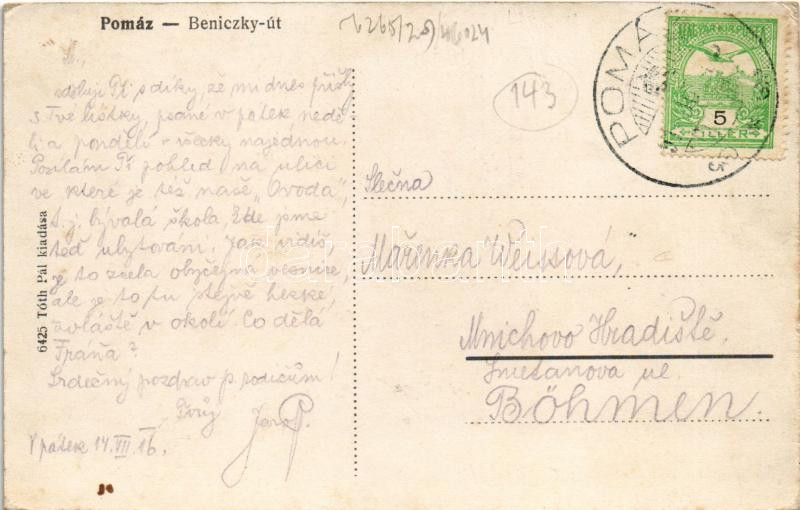 Pomáz — Beniczky-út
143
POMÁZ
MAGYAR KIR. POSTA
5
FILLÉR
M.,
sděluji Ti s díky, že mi dnes přišly
3 Tvé lístky, psané v pátek neděli
a pondělí – všecky najednou.
Posílám Ti pohled na ulici
ve které je též naše „Ovoda",
t. j. bývalá škola, kde jsme
teď ubytováni. Jak vidíš
je to zcela obyčejná vesnice,
ale je to tu stejně hezké,
zvláště v okolí. Co dělá
Fráňa?
Srdečný pozdrav p. rodičům!
Tvůj
Jara
V pátek 14. VII. 16.
6425 Tóth Pál kiadása
Slečna
Mařenka Weissová,
Mnichovo Hradiště.
Smetanova ul.
Böhmen.